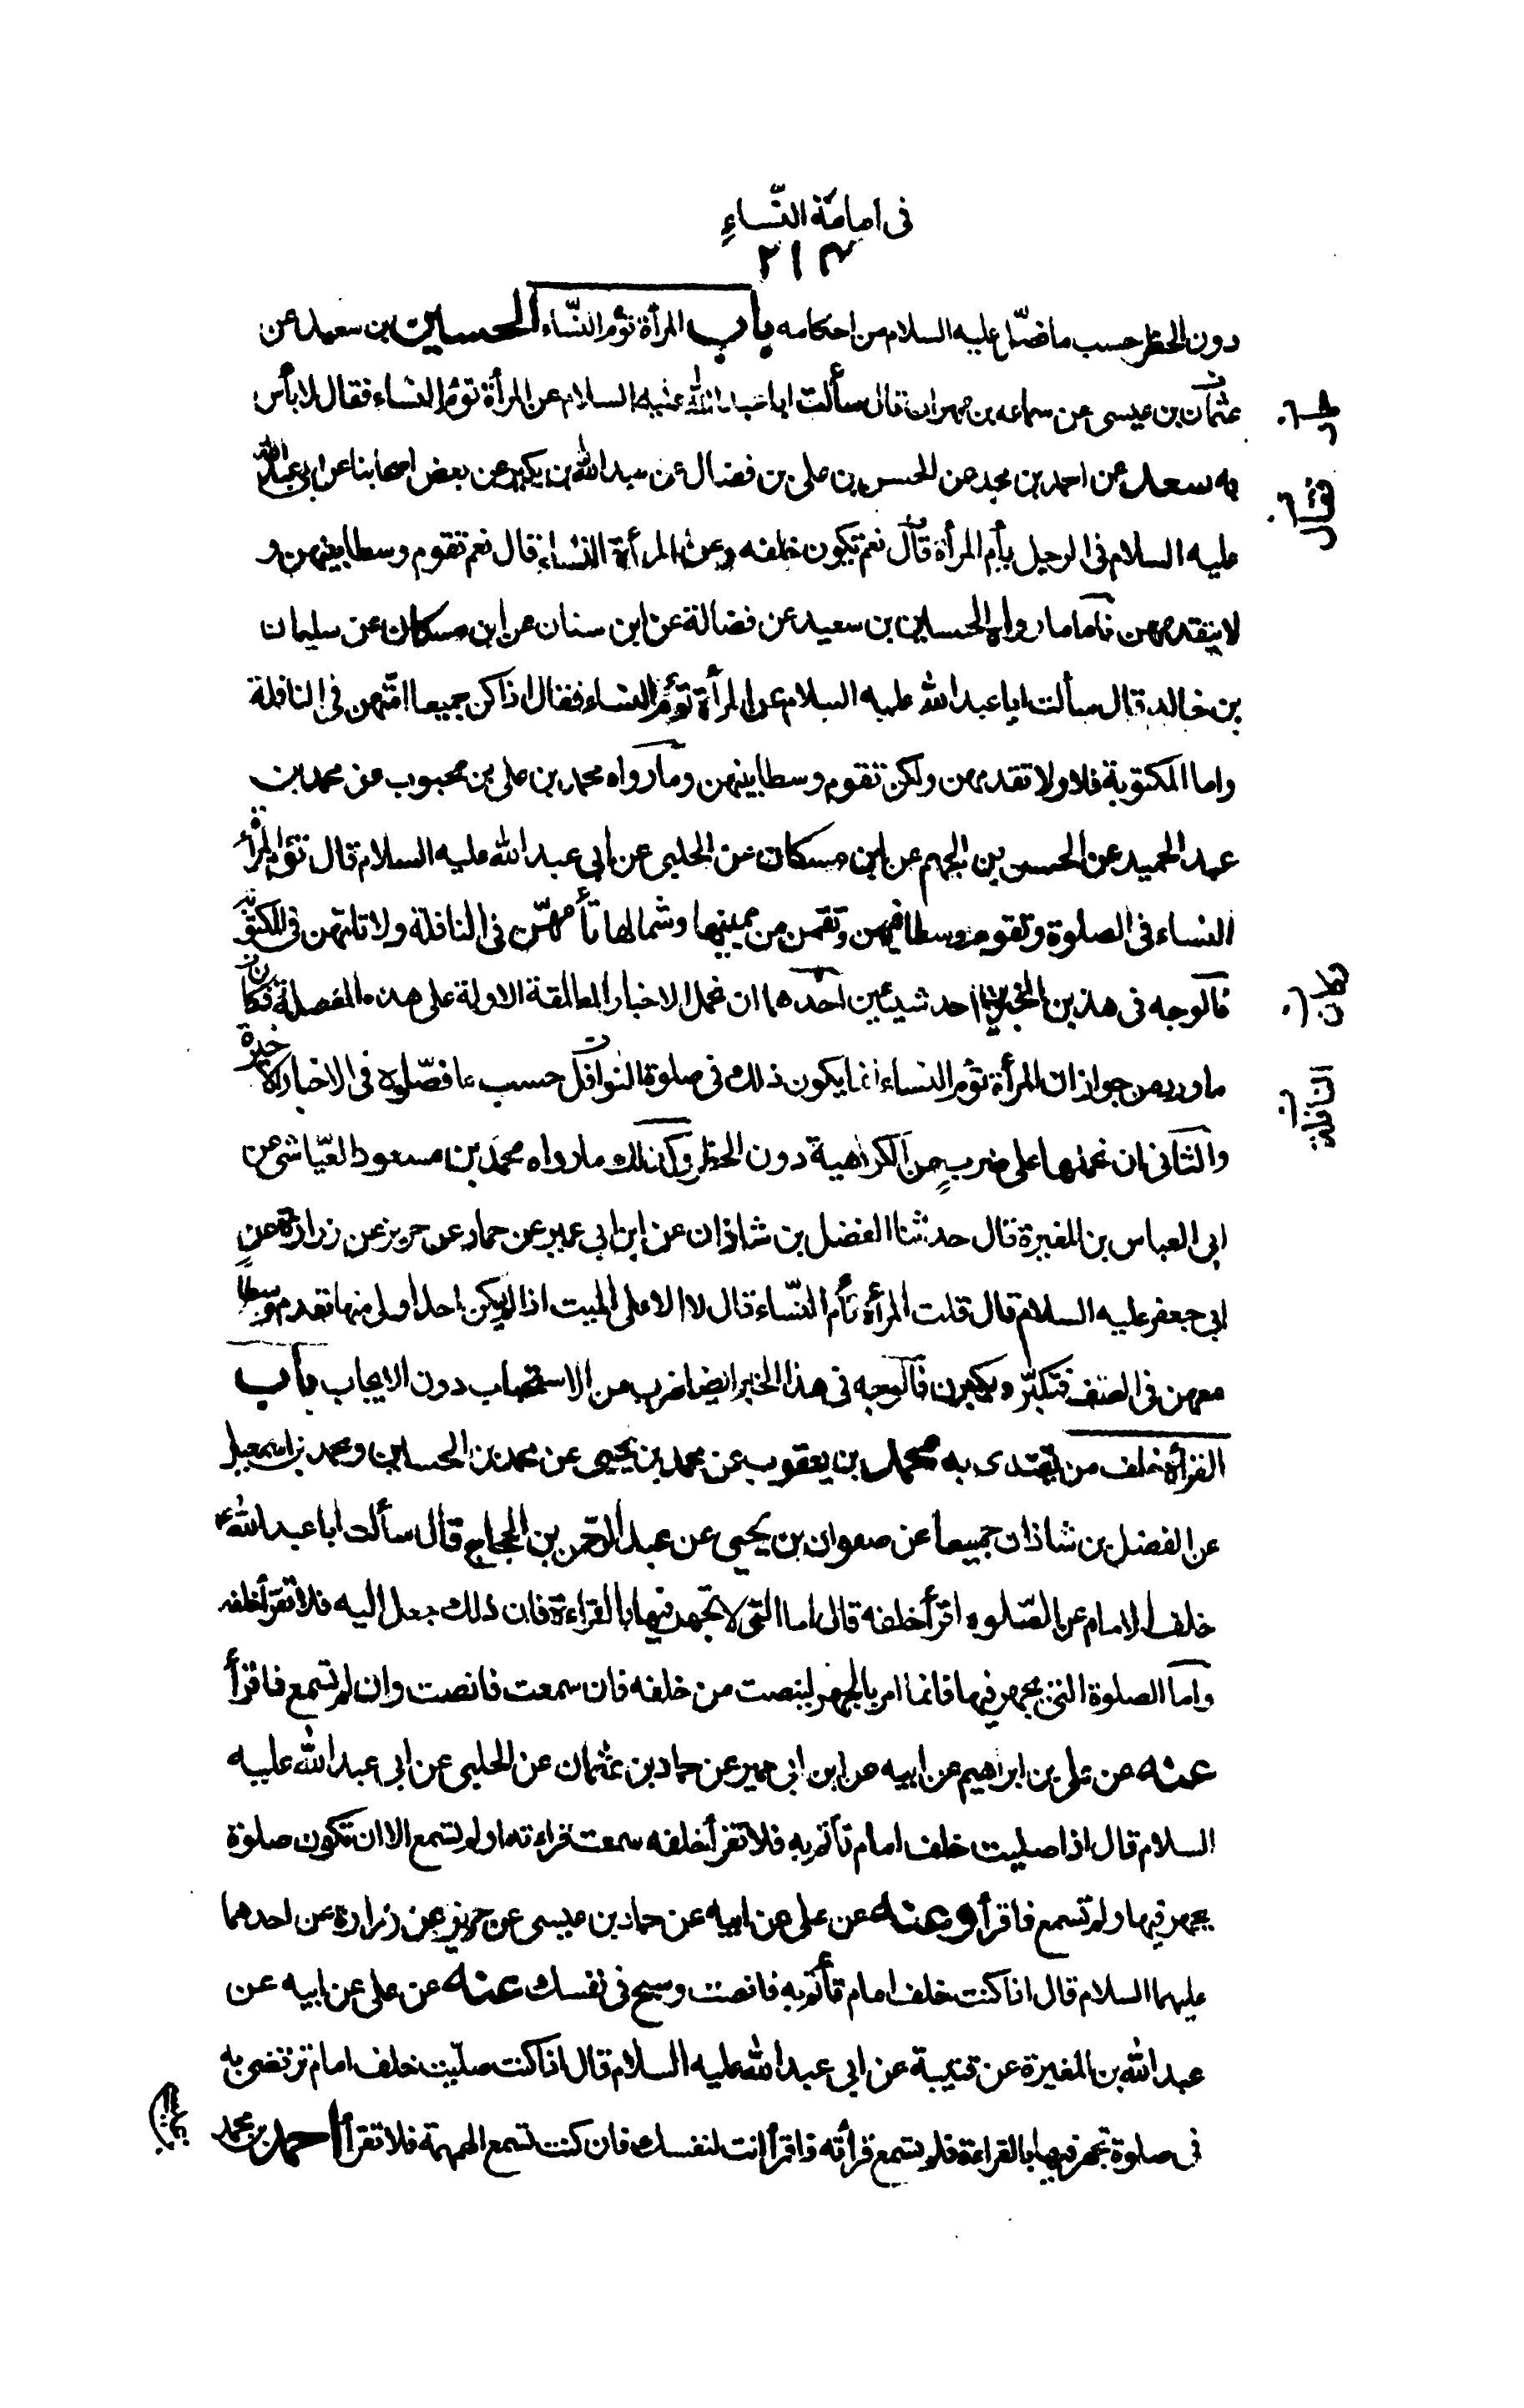 فى امامة النّساءِ
٢١٣
دون الحظر حسب ما فصّل عليه السلام من احكامه باب المرأة تؤم النّساء الحسين بن سعيد عن
عثمان بن عيسى عن سماعه بن مهران قال سألت ابا عبد الله عليه السلام عن المرأة تؤم النساء فقال لا بأس
به سعد عن احمد بن محمد عن الحسن بن على بن فضال عن عبد الله بن بكير عن بعض اصحابنا عن ابى عبد الله
عليه السلام فى الرجل يأم المرأة قال نعم تكون خلفه وعن المرأة النساء قال نعم تقوم وسطا بينهن و
لا يتقدمهن فاما ما رواه الحسين بن سعيد عن فضالة عن ابن سنان عن ابن مسكان عن سليمان
بن خالد قال سألت ابا عبد الله عليه السلام عن المرأة تؤم النساء فقال اذا كن جميعا امّتهن فى النافلة
واما المكتوبة فلا ولا تقدمهن ولكن تقوم وسطا بينهن وما رواه محمد بن على بن محبوب عن محمد بن
عبد الحميد عن الحسن بن الجهم عن ابن مسكان عن الحلبى عن ابى عبد الله عليه السلام قال تؤم المرأة
النساء فى الصلوة وتقوم وسطا فيهن وتقمن من يمينها وشمالها تأمهنّ فى النافلة ولا تأمهن فى المكتوبة
فالوجه فى هذين الخبرين احد شيئين احدهما ان نحمل الاخبار المطلقة الاولة على هذه المفصلة فكان
ما ورد من جواز ان المرأة تؤم النساء انما يكون ذلك فى صلوة النوافل حسب ما فصّلوه فى الاخبار الاخيرة
والثانى ان نحملها على ضربٍ من الكراهية دون الحظر وكذلك ما رواه محمد بن مسعود العيّاشى عن
ابى العباس بن المغيرة قال حدثنا الفضل بن شاذان عن ابن ابى عمير عن حماد عن حريز عن زرارة عن
ابى جعفر عليه السلام قال قلت المرأة تأم النّساء قال لا الا على الميت اذا لم يكن احد اولى منها تقدم وسطا
معهن فى الصف فتكبّر ويكبرن فالوجه فى هذا الخبر ايضا ضرب من الاستحباب دون الايجاب باب
القرأة خلف من يقتدى به محمد بن يعقوب عن محمد بن يحيى عن محمد بن الحسين ومحمد بن اسمعيل
عن الفضل بن شاذان جميعا عن صفوان بن يحيى عن عبد الرحمن بن الحجاج قال سألت ابا عبد الله ع
خلف الامام عن الصّلوه اقرأ خلفه قال اما التى لا تجهد فيها بالقراءة فان ذلك جعل اليه فلا تقرأ خلفه
واما الصلوة التى يجهر فيها فانما امر بالجهر لينصت من خلفه فان سمعت فانصت وان لم تسمع فاقرأ
عنه عن على بن ابراهيم عن ابيه عن ابن ابى عمير عن حماد بن عثمان عن الحلبى عن ابى عبد الله عليه
السلام قال اذا صليت خلف امام تأتم به فلا تقرأ خلفه سمعت قراءته او لم تسمع الا ان تكون صلوة
يجهر فيها ولم تسمع فاقرأ وعنه عن على عن ابيه عن حماد بن عيسى عن حريز عن زرارة عن احدهما
عليهما السلام قال اذا كنت خلف امام تأتم به فانصت وسبح فى نفسك عنه عن على عن ابيه عن
عبد الله بن المغيرة عن قتيبة عن ابى عبد الله عليه السلام قال اذا كنت صلّيت خلف امام ترتضى به
فى صلوة تجهر فيها بالقراءة فلم تسمع قرأته فاقرأ انت لنفسك فان كنت تسمع الهمهمة فلا تقرأ احمد بن محمد
فقال
فكان
النافلة